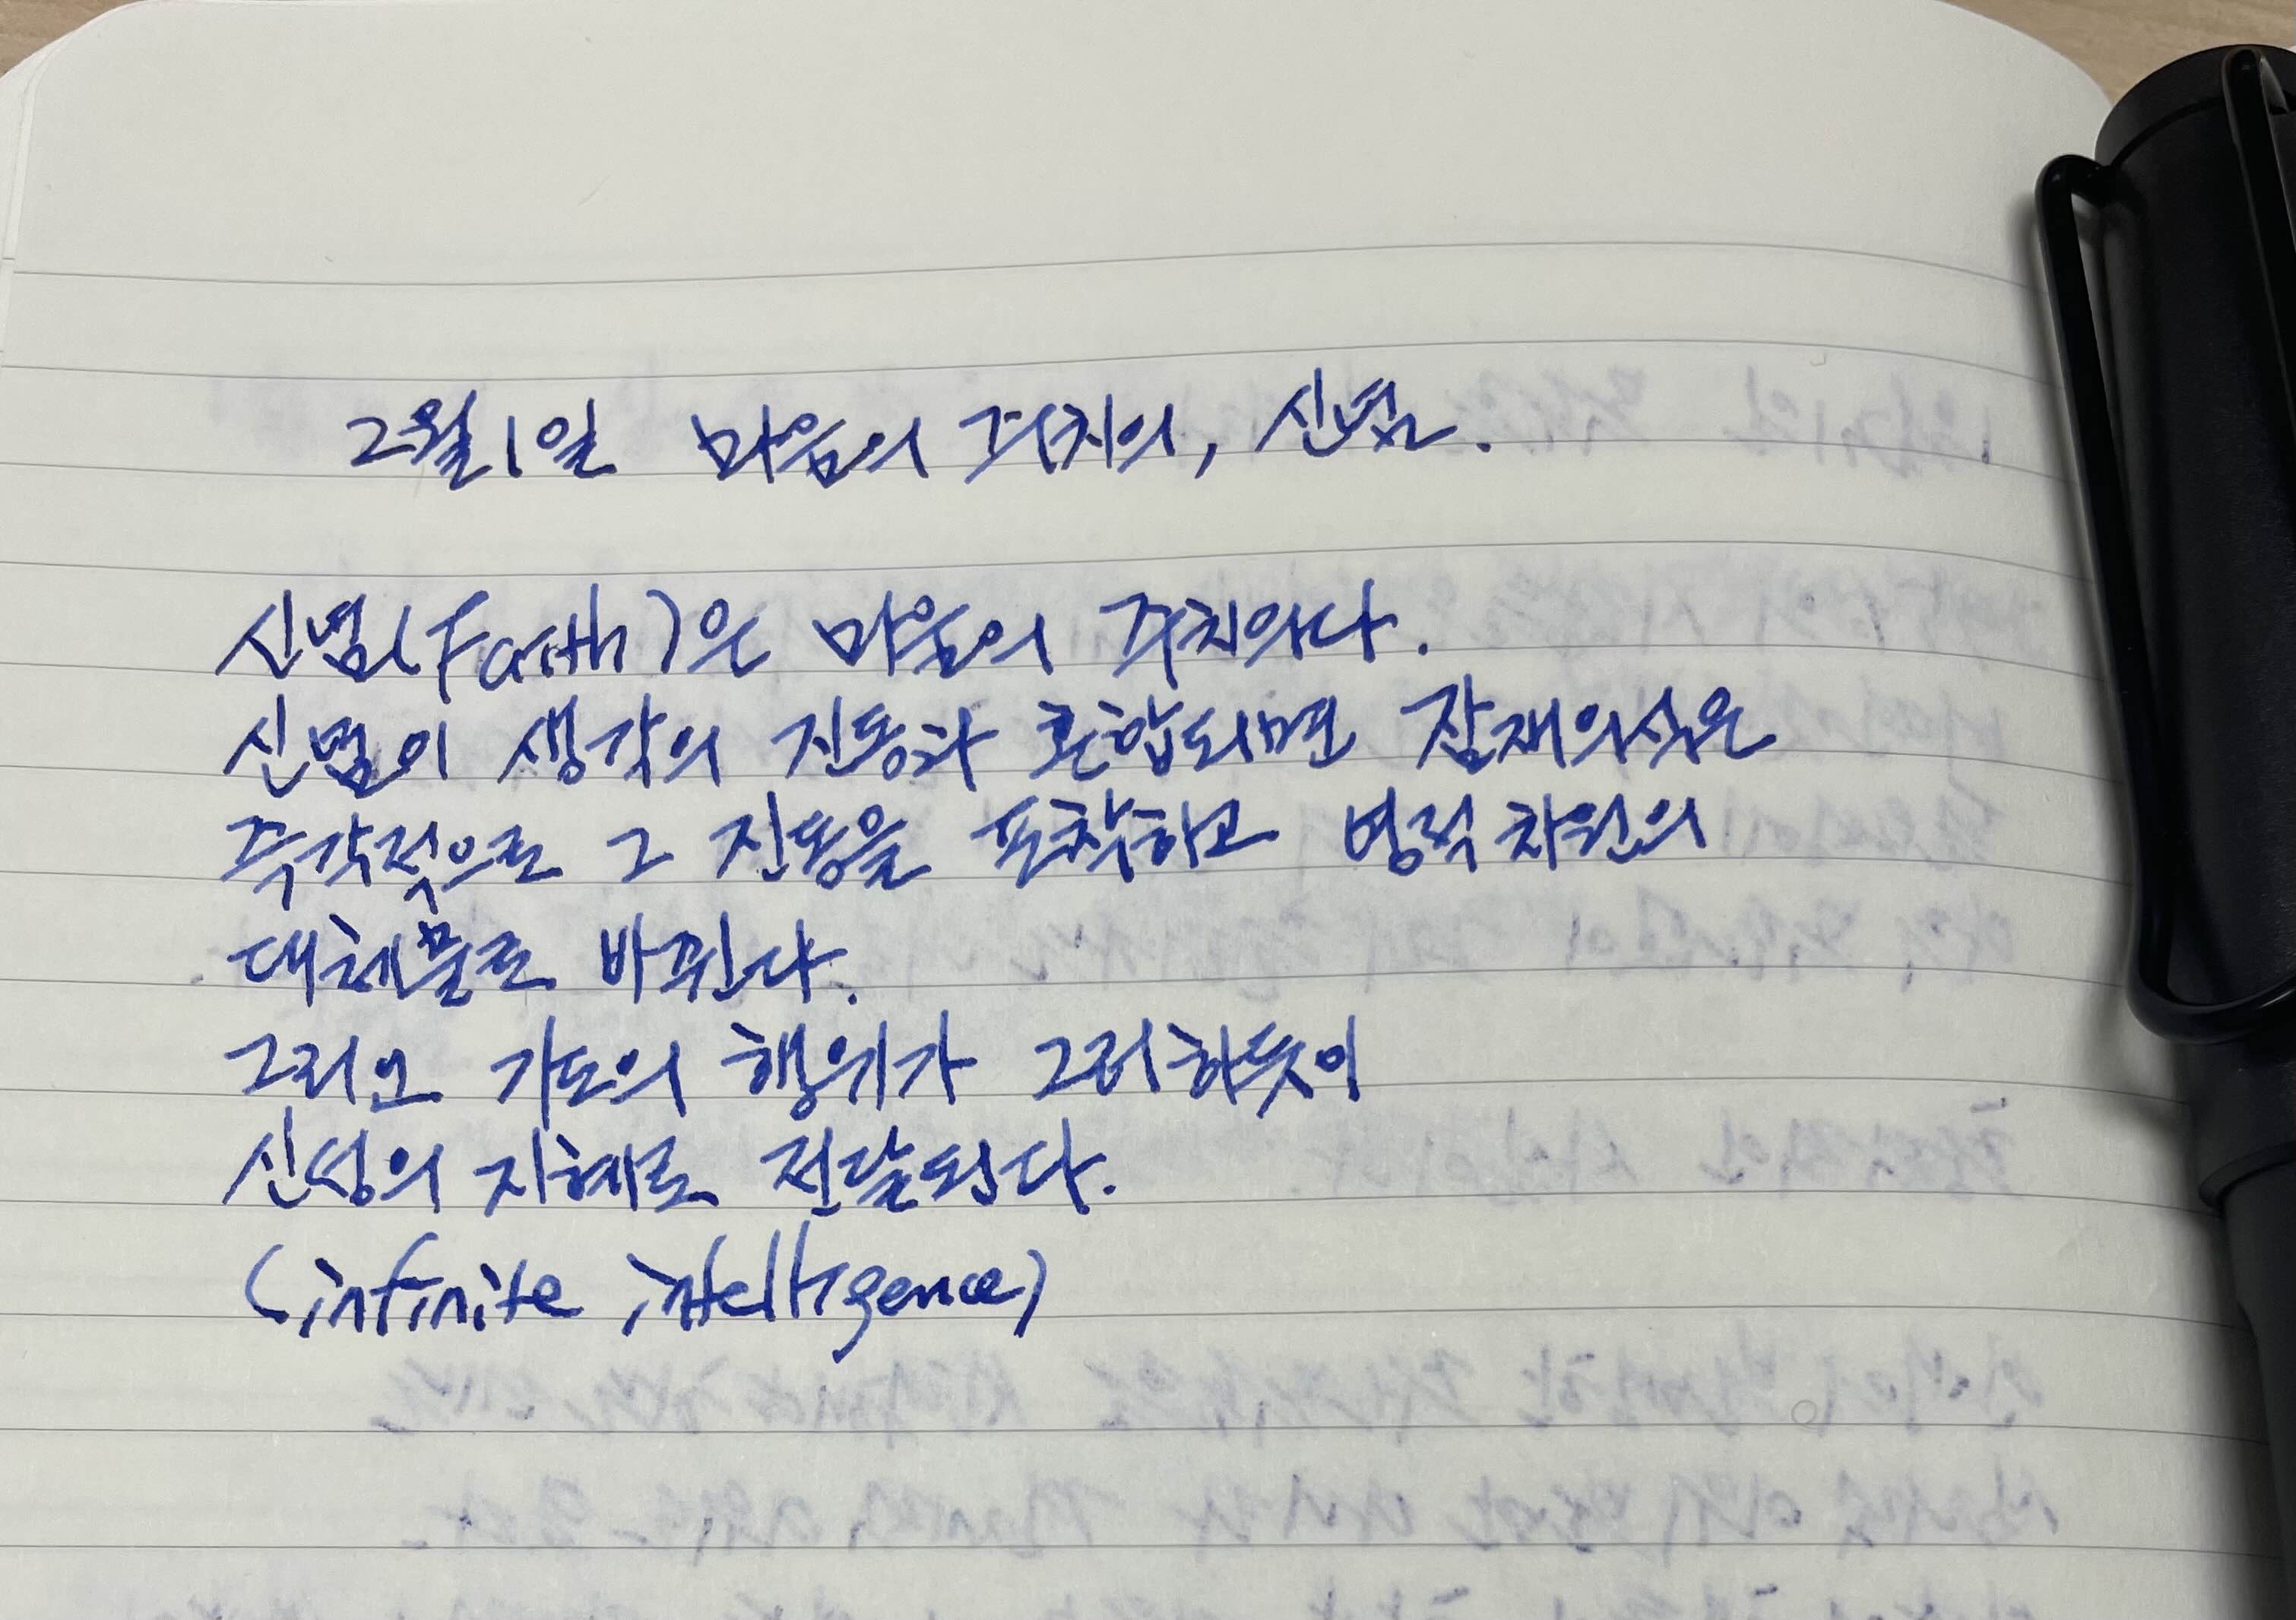 2월 1일 마음의 주치의, 신념.
신념(Faith)은 마음의 주치의다.
신념이 생각의 진동과 혼합되면 잠재의식은
즉각적으로 그 진동을 포착하고 영적 차원의
대체물로 바뀐다.
그리고 기도의 행위가 그러하듯이
신성의 지혜로 전달된다.
(infinite intelligence)